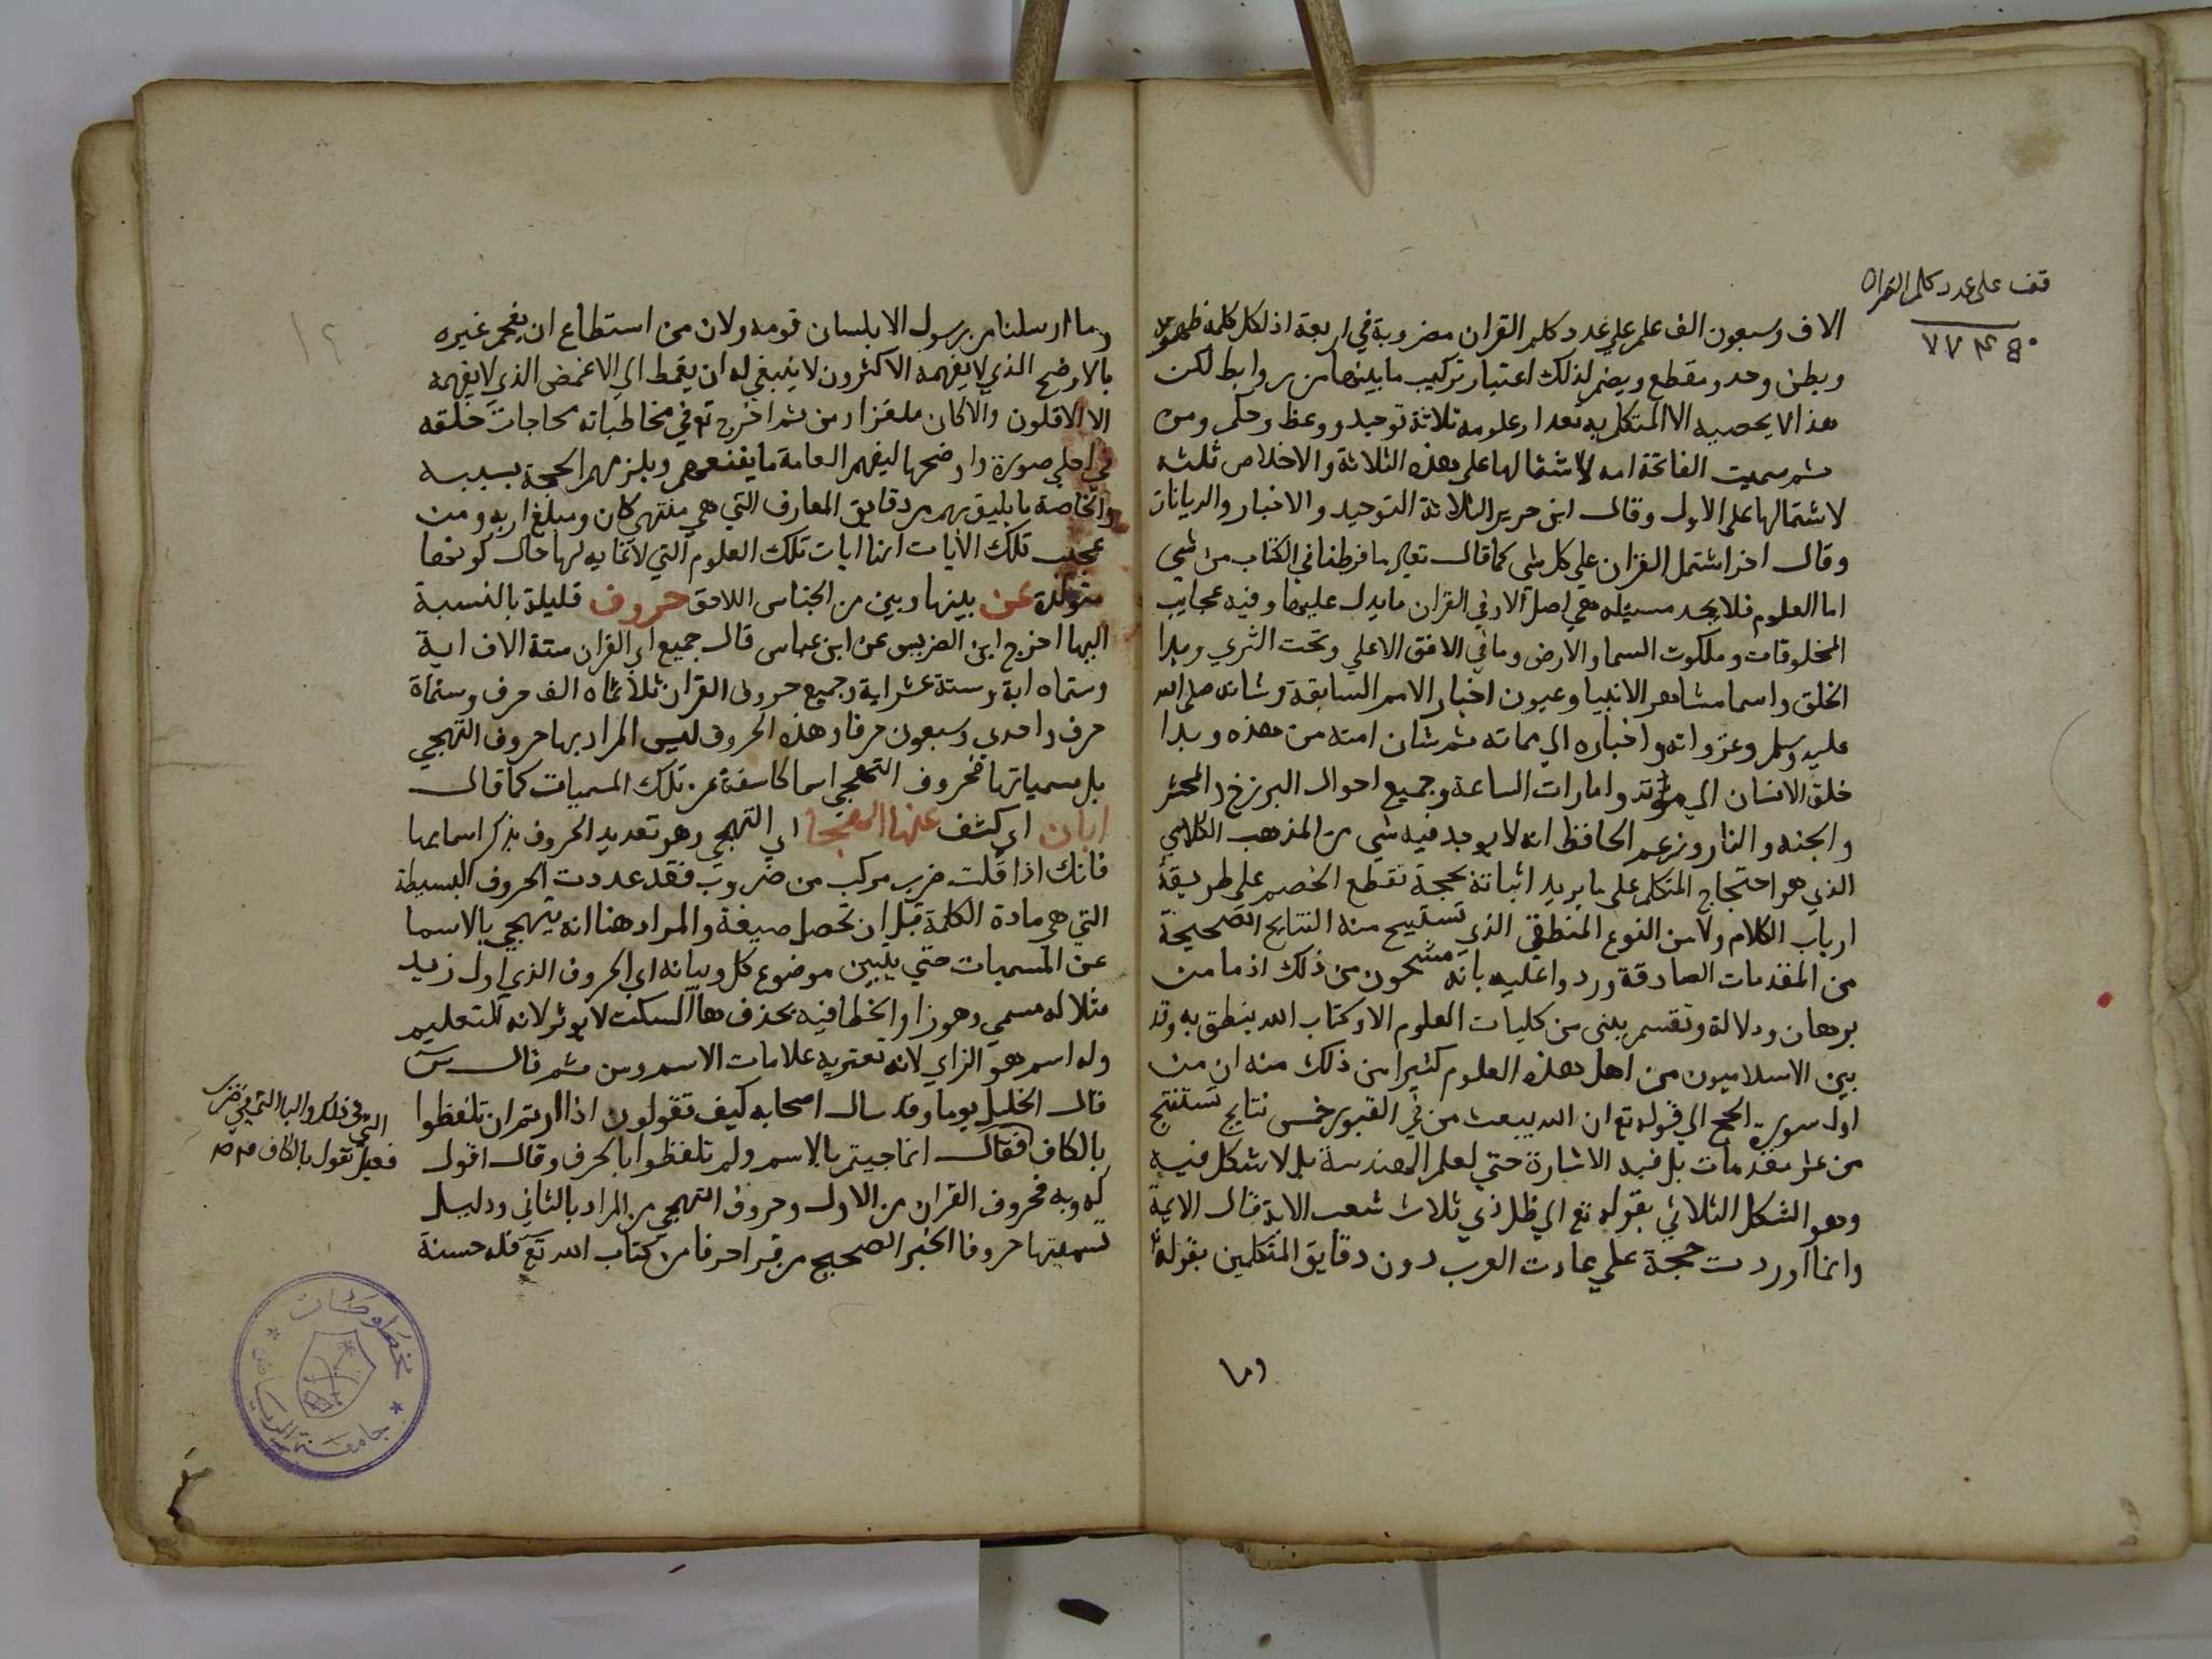 قف على عدد كلم القران
٧٧٤٥٠
الاف وسبعون الف علم على عدد كلم القران مضروبة في اربعة اذ لكل كلمة ظهر
وبطن وحد ومقطع ويضم لذلك اعتبار تركيب ما بينها من روابط لكن
هذا لا يحصيه الا المتكلم به تعد ام علومه ثلاثة توحيد ووعظ وحكم ومن
ثم سميت الفاتحة امه لاشتمالها على هذه الثلاثة والاخلاص ثلثه
لاشتمالها على الاول وقال ابن جرير الثلاثة التوحيد والاخبار والديانات
وقال اخر اشتمل القران على كل شي كما قال تعالى ما فرطنا في الكتاب من شي
اما العلوم فلا يجد مسيله هي اصل الا وفي القران ما يدل عليها وفيه عجايب
المخلوقات وملكوت السما والارض وما في الافق الاعلي وتحت الثري وبدا
الخلق واسما مشاهير الانبيا وعيون اخبار الامم السابقة وشانه صلى الله
عليه وسلم وغزواته واخباره الي مماته ثم شان امته من هذه وبدا
خلق الانسان الي موته وامارات الساعة وجميع احوال البرزخ والمحشر
والجنه والنار وزعم الحافظ انه لا يوجد فيه شي من المذهب الكلامي
الذي هو احتجاج المتكلم على ما يريد اثباته بحجة تقطع الخصم على طريقة
ارباب الكلام ولا من النوع المنطقي الذي تستنتج منه النتايج الصحيحة
من المقدمات الصادقة وردوا عليه بانه مشحون من ذلك اذ ما من
برهان ودلالة وتقسيم يبنى من كليات العلوم الا وكتاب الله ينطق به وقد
بين الاسلاميون من اهل هذه العلوم كثيرا من ذلك منه ان من
اول سورة الحج الي قوله تع ان الله يبعث من في القبور خمس نتايج تستنتج
من عشر مقدمات بل فيه الاشارة حتي لعلم الهندسة بل لاشكل فيه
وهو الشكل الثلاثي بقوله تع الي ظل ذي ثلاث شعب الاية قال الايمة
وانما اوردت حججه على عادت العرب دون دقايق المتكلمين بقوله
وما
١٢
وما ارسلنا من رسول الا بلسان قومه ولان من استطاع ان يفهم غيره
بالاوضح الذي لا يفهمه الاكثرون لا ينبغي له ان يقمط الي الاغمض الذي لا يفهمه
الا الاقلون والا كان ملغزا ومن ثم اخرج تع في مخاطباته محاجات خلقه
في اجلي صورة واوضحها ليفهم العامة ما يقنعهم ويلزمهم الحجة بسببه
والخاصة ما يليق بهم من دقايق المعارف التي هي منتهي كان ومبلغ اربه ومن
عجيب تلك الايات انها ايات تلك العلوم التي لا غايه لها حال كونها
متولدة عن بينها وبين من الجناس اللاحق حروف قليلة بالنسبة
اليها اخرج ابن الضريس عن ابن عباس قال جميع اي القران ستة الاف اية
وستماه اية وستة عشر اية وجميع حروف القران ثلاثماه الف حرف وستماة
حرف واحدي وسبعون حرفا وهذه الحروف ليس المراد بها حروف التهجي
بل مسمياتها فحروف التهجي اسما كاسفة عن تلك المسميات كما قال
ابان اي كشف عنها الهجا اي التهجي وهو تعديد الحروف بذكر اسمايها
فانك اذا قلت ضرب مركب من ض ر ب فقد عددت الحروف البسيطة
التي هي مادة الكلمة قبل ان تحصل صيغة والمراد هنا انه يتهجي بالاسما
عن المسميات حتي يبين موضوع كل وبيانه اي الحروف الذي اول زيد
مثلا له مسمي وهو زا والخطا فيه بحذف ها السكت لا يوثر لانه للتعليم
وله اسم هو الزاي لانه تعتريه علامات الاسم ومن ثم قال س
قال الخليل يوما وقد سال اصحابه كيف تقولون اذا اردتم ان تلفظوا
بالكاف فقال انما جيتم بالاسم ولم تلفظوا بالحرف وقال اقول
كه وبه فحروف القران من الاول وحروف التهجي من المراد بالثاني ودليل
تسميتها حروفا الخبر الصحيح من قرا حرفا من كتاب الله تع فله حسنة
التي في ذلك والبا التي في ضرب
فقيل تقول بالكاف
مخطوطات
جامعة الرياض